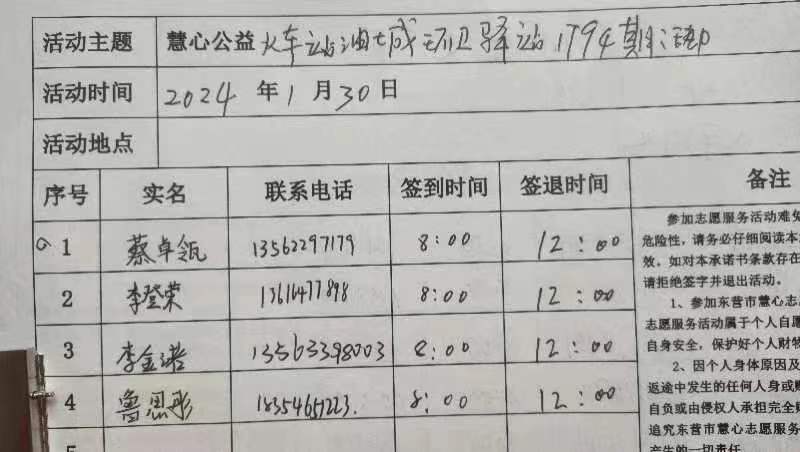 活动主题 慧心公益火车站油城环卫驿站1794期活动
活动时间 2024年1月30日
活动地点
序号 实名 联系电话 签到时间 签退时间 备注
1 蔡卓瓴 13562297179 8:00 12:00
2 李登荣 13616477898 8:00 12:00
3 李金诺 13563398003 8:00 12:00
4 鲁思彤 18354651223. 8:00 12:00
参加志愿服务活动难免
危险性,请务必仔细阅读本
效。如对本承诺书条款存在
请拒绝签字并退出活动。
1、参加东营市慧心志
志愿服务活动属于个人自愿
自身安全,保护好个人财物
2、因个人身体原因及
返途中发生的任何人身或
自负或由侵权人承担完全
追究东营市慧心志愿服务
产生的一切责任